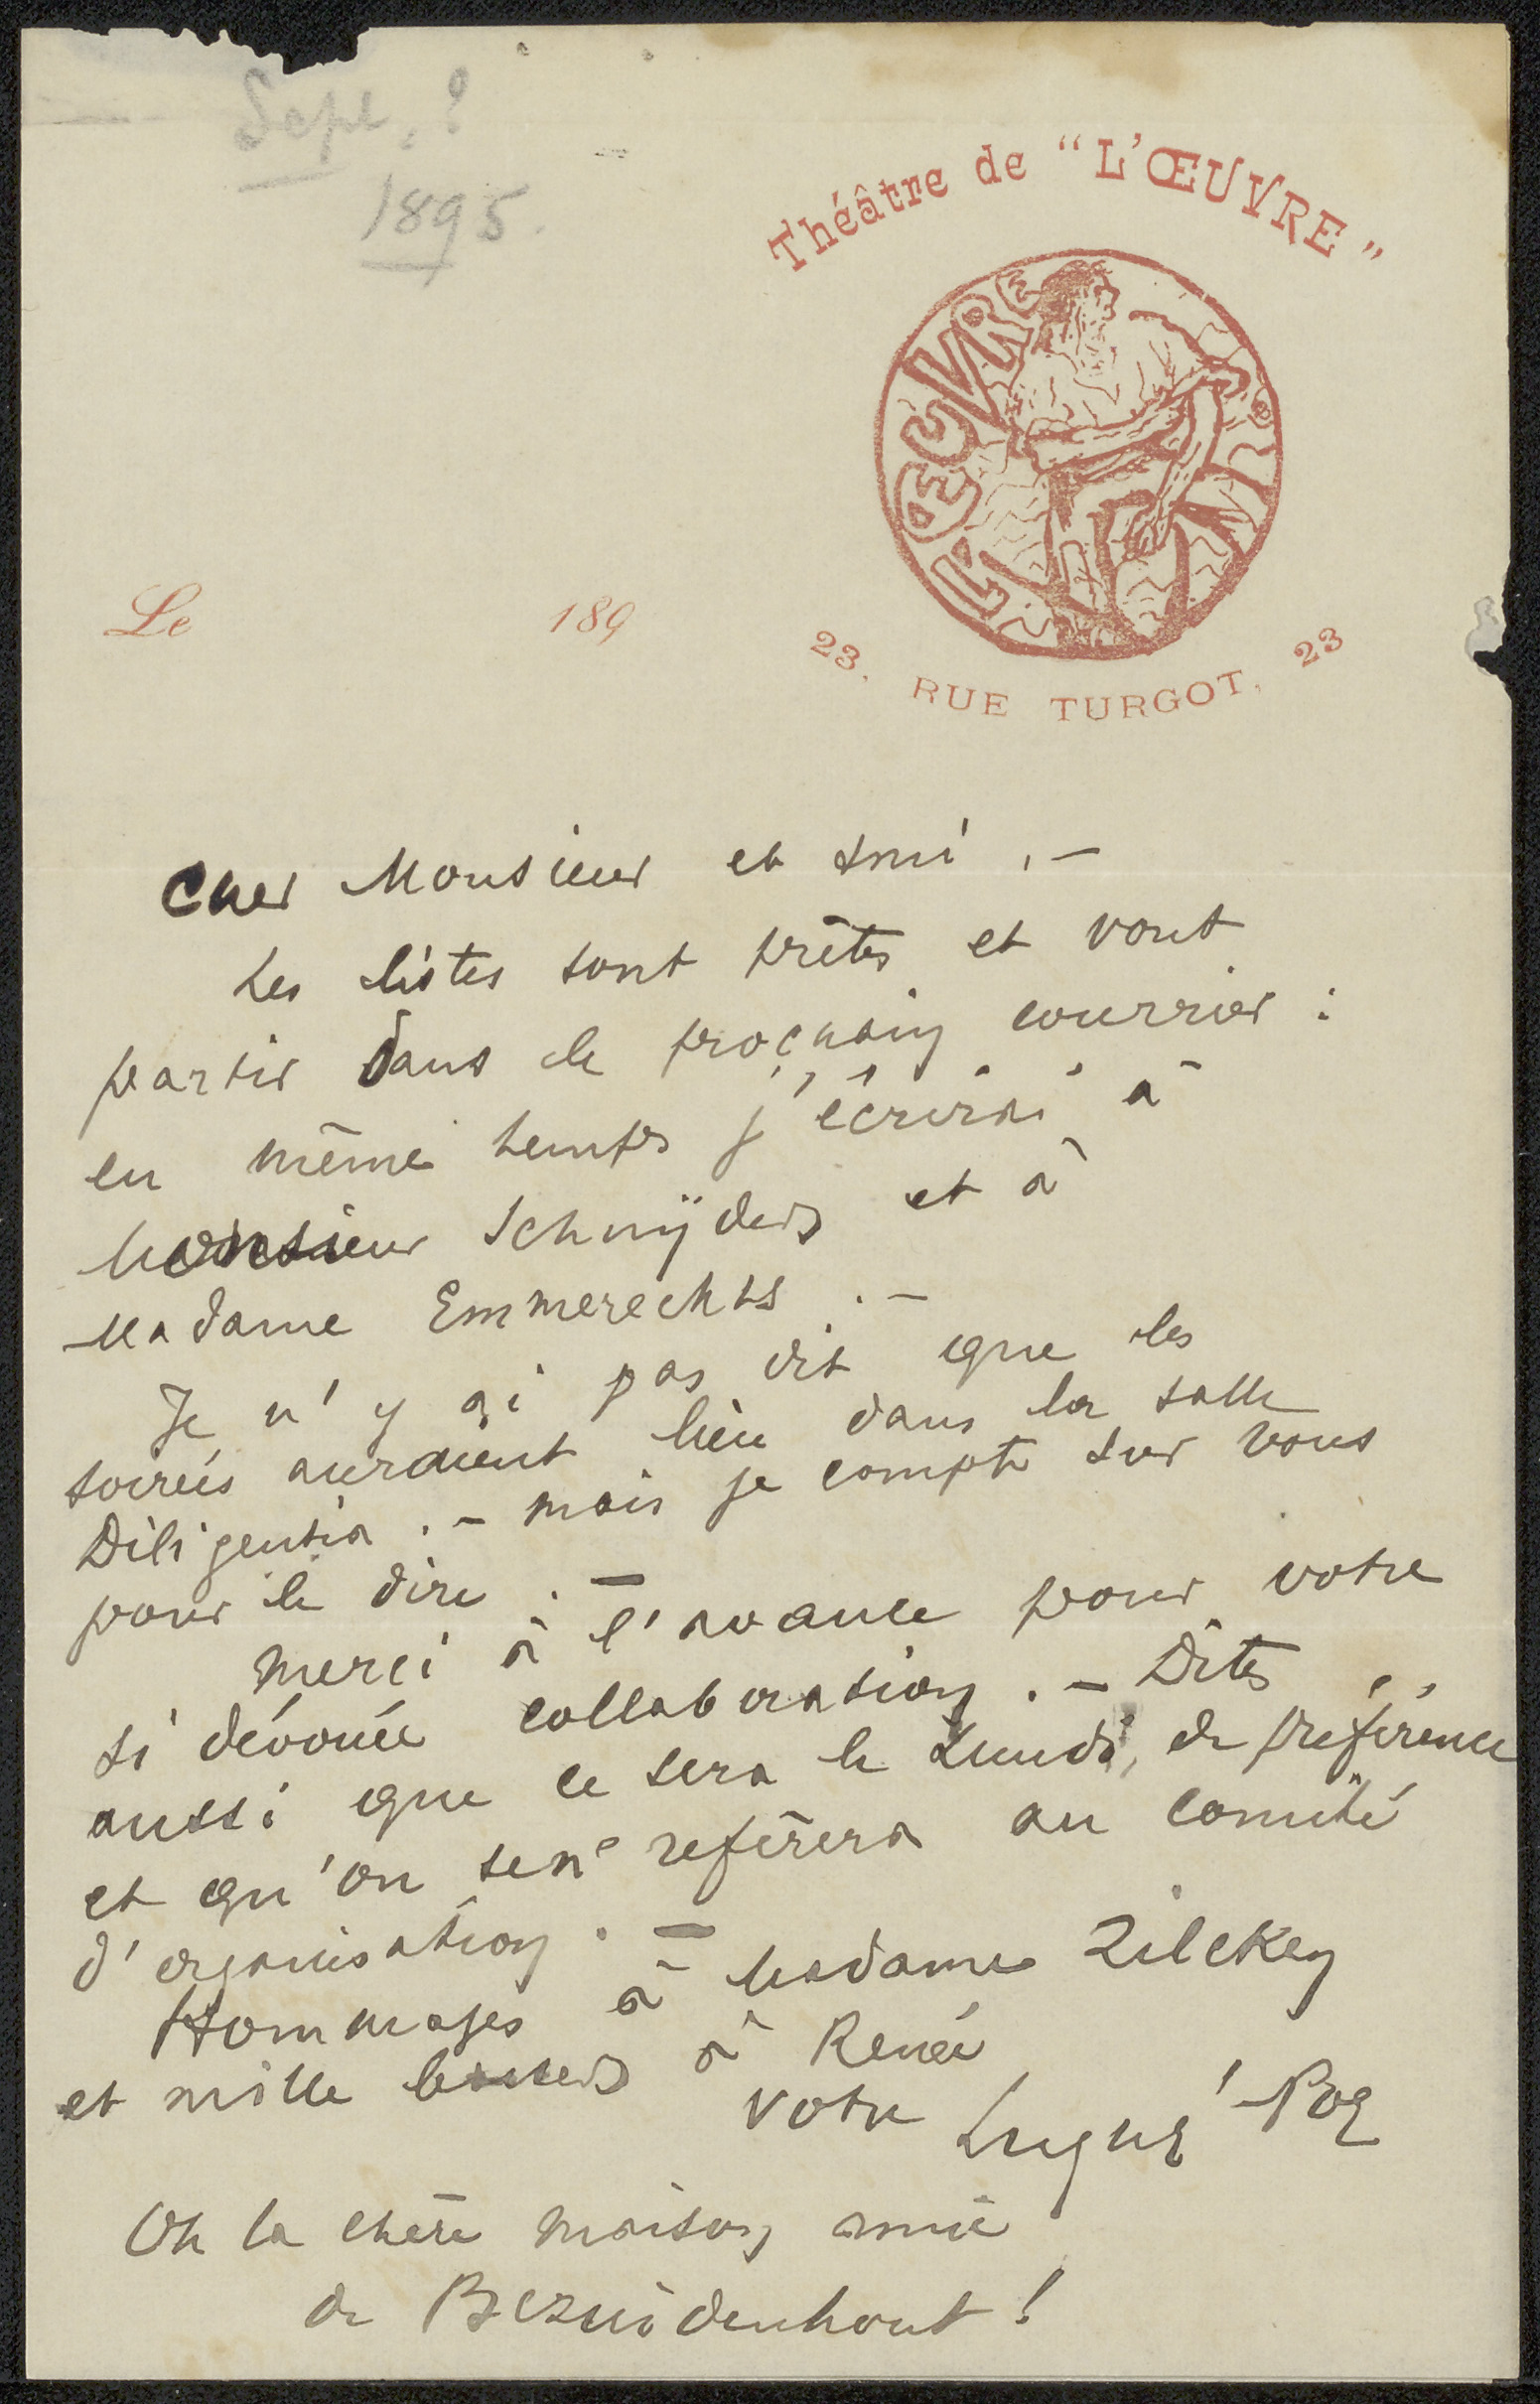 Sept. ?
1895.
Théâtre de "L'ŒUVRE"
L'ŒUVRE
Le 189
23, RUE TURGOT, 23
Cher Monsieur et ami, –
Les listes sont prêtes et vont
partir dans le prochain courrier :
en même temps j'écrirai à
Monsieur Schnÿders et à
Madame Emmerechts. –
Je n'y ai pas dit que les
soirées auraient lieu dans la salle
Diligentia. – mais je compte sur vous
pour le dire. –
Merci à l'avance pour votre
si dévouée collaboration. – Dites
aussi que ce sera le Lundi, de préférence
et qu'on s'en réfèrera au comité
d'organisation. –
Hommages à Madame Zilcken
et mille baisers à Renée
votre Lugné-Poe
Oh la chère maison amie
de Bezuidenhout !